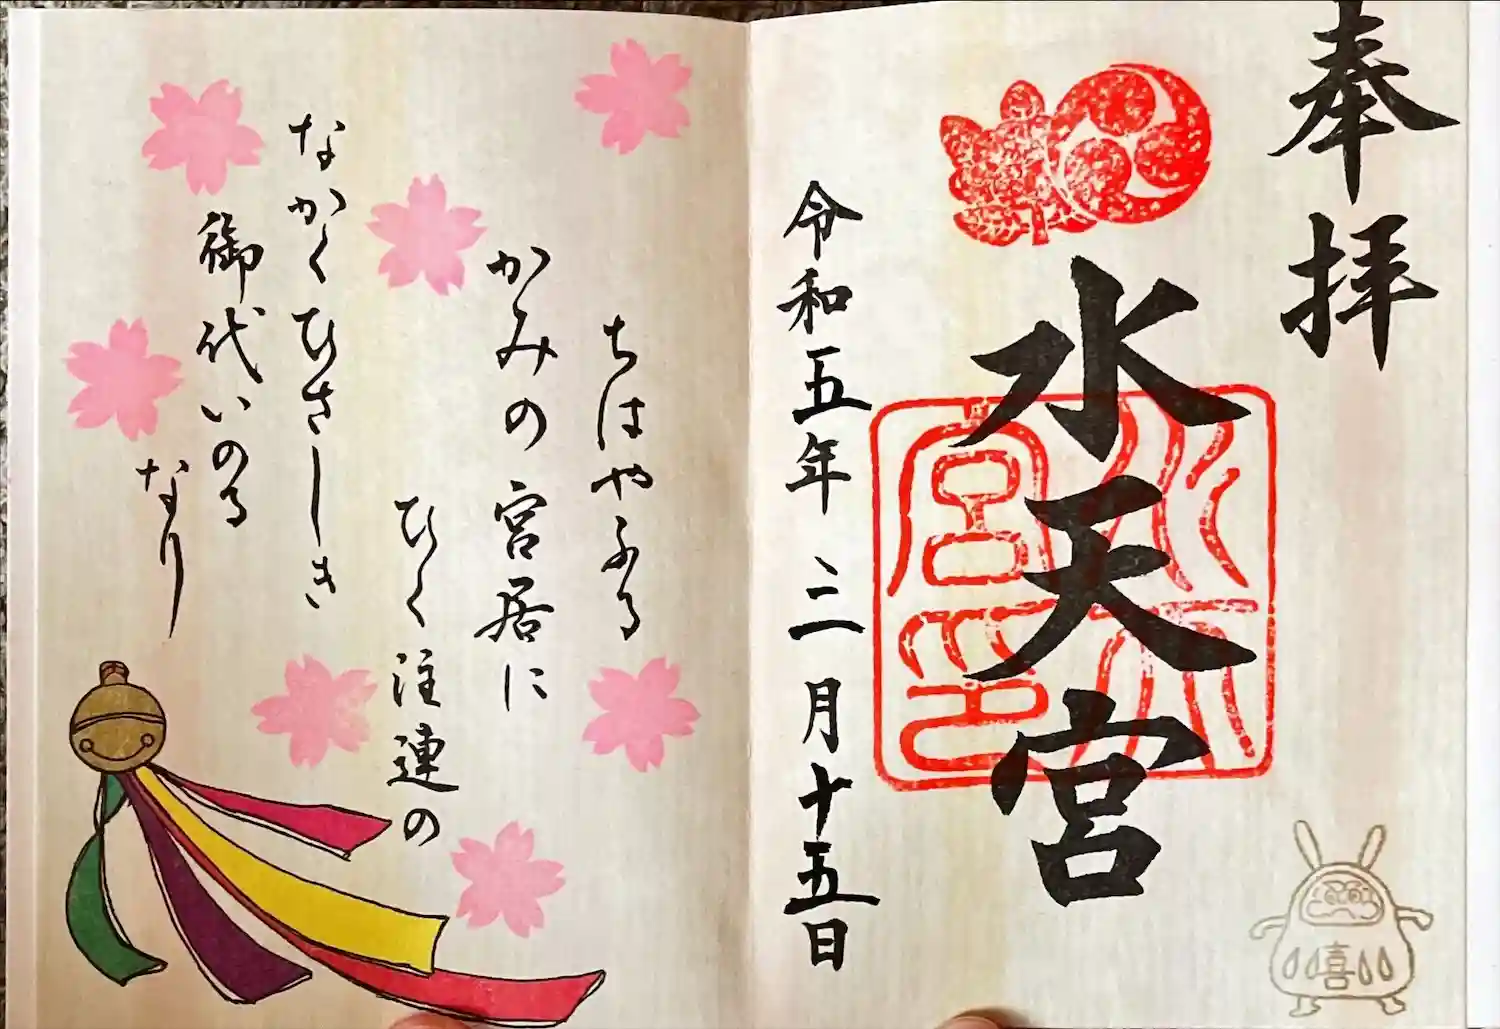 奉拝
水天宮
令和五年三月十五日
水天宮印
喜
ちはやふる
かみの宮居に
ひく注連の
なかくひさしき
御代いのる
なり